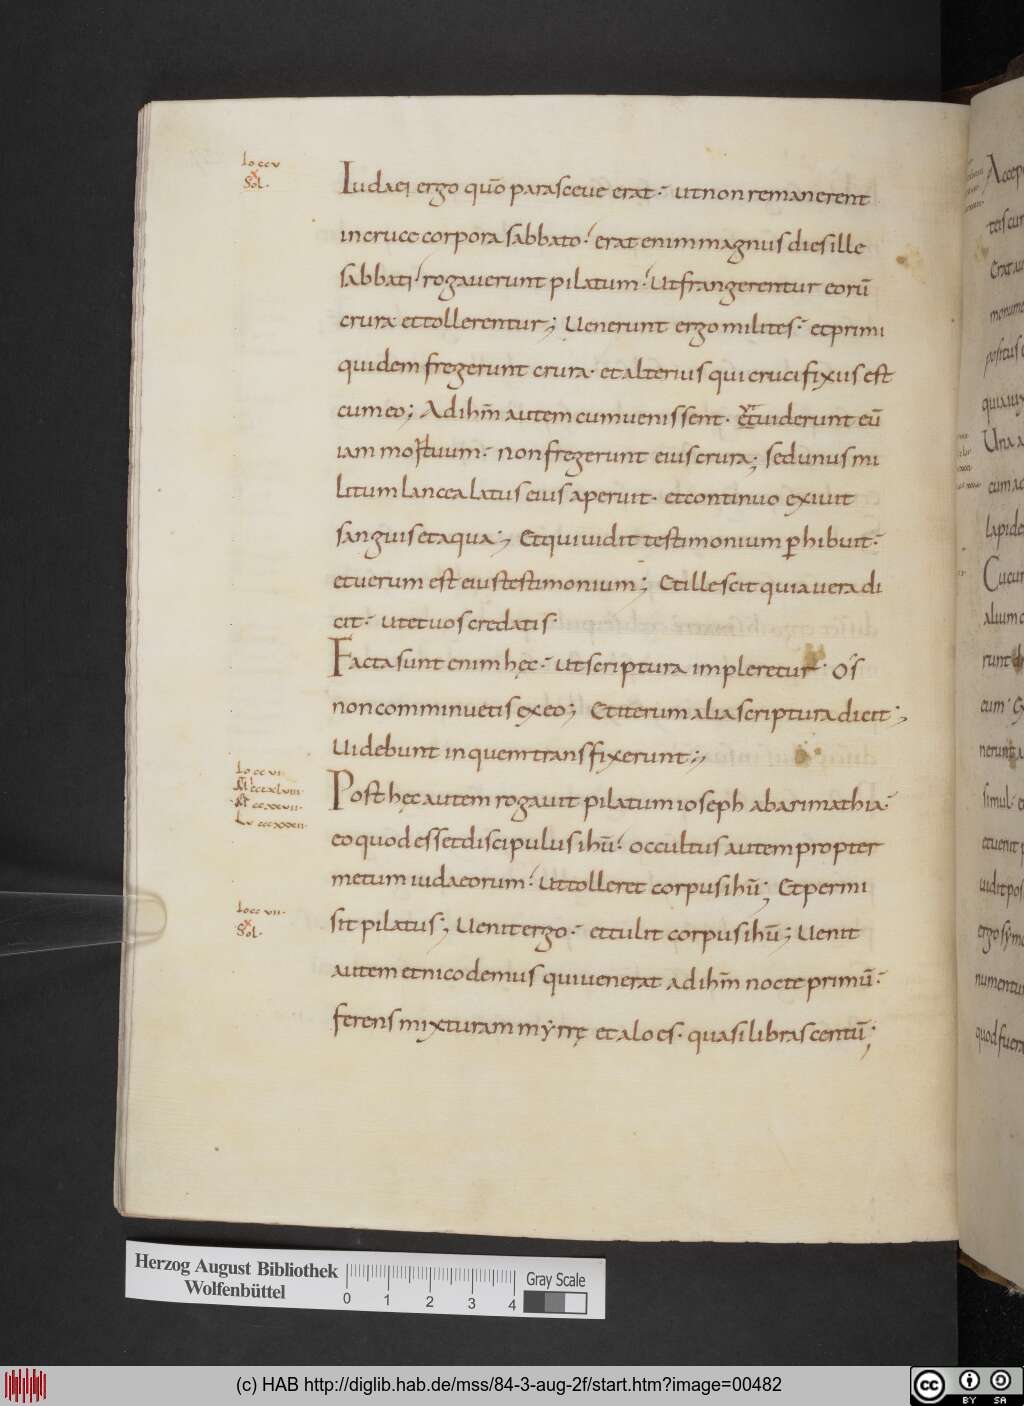 Io ccv
x
Sol.
Iudaei ergo quō parasceue erat· ut non remanerent
in cruce corpora sabbato· erat enim magnus dies ille
sabbati· rogauerunt pilatum· ut frangerentur eorū
crura et tollerentur; Uenerunt ergo milites· et primi
quidem fregerunt crura· et alterius qui crucifixus est
cum eo; Ad ihm̄ autem cum uenissent· uiderunt eū
iam mortuum· non fregerunt eius crura; sed unus mi
litum lancea latus eius aperuit· et continuo exiuit
sanguis et aqua; Et qui uidit testimonium ꝑhibuit·
et uerum est eius testimonium; Et ille scit quia uera di
cit· ut et uos credatis·
Facta sunt enim hęc· ut scriptura impleretur· Os
non comminuetis ex eo; Et iterum alia scriptura dicit;
Uidebunt in quem transfixerunt;
Io ccvi
Mt ccxlviii
Mr ccxxvii·
Lv cccxxxii·
Post hęc autem rogauit pilatum ioseph ab arimathia·
eo quod esset discipulus ihū· occultus autem propter
metum iudaeorum· ut tolleret corpus ihū; Et permi
Io ccvii·
x
Sol·
sit pilatus; Uenit ergo· et tulit corpus ihū; Uenit
autem et nicodemus qui uenerat ad ihm̄ nocte primū·
ferens mixturam myrrę et aloes· quasi libras centū;
Accep
teis cun
Erat au
monume
positus
quia iux
Una a
cum ad
lapide
Cucur
alium
runt
cum·
nerunt
simul·
et uenit
uidit pos
ergo symo
numentum
quod fuera
Herzog August Bibliothek
Wolfenbüttel
0 1 2 3 4
Gray Scale
(c) HAB http://diglib.hab.de/mss/84-3-aug-2f/start.htm?image=00482
cc BY SA